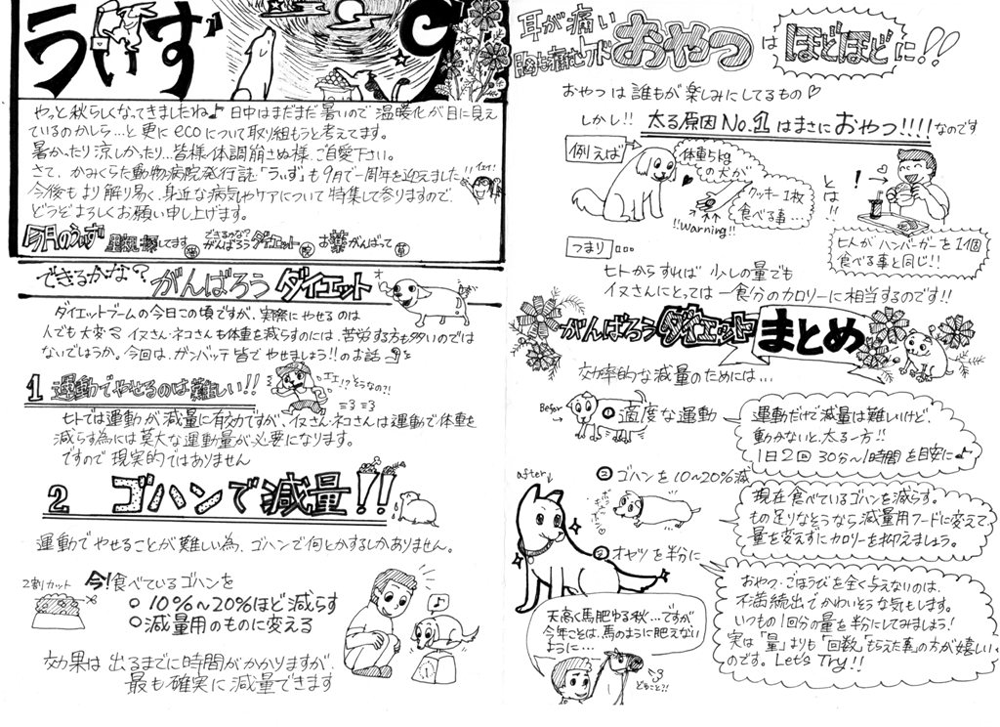 うぃず
やっと秋らしくなってきましたね♪ 日中はまだまだ暑いので 温暖化が目に見え
ているのかしら…と 更に ecoについて取り組もうと考えてます。
暑かったり 涼しかったり…皆様、体調崩さぬ様、ご自愛下さい。
さて、かみくらた動物病院発行誌「うぃず」も9月で一周年を迎えました!!
今後も より解り易く、身近な病気やケアについて特集して参りますので、
どうぞよろしくお願い申し上げます。
今月のうぃず
できるかな?
がんばろうダイエット
お薬がんばって
できるかな? がんばろう ダイエット
ダイエットブームの今日この頃ですが、実際にやせるのは
人でも大変? イヌさん・ネコさんも体重を減らすのには、苦労する方も多いのでは
ないでしょうか。今回は、ガンバッテ皆でやせましょう!!のお話
1 運動でやせるのは難しい!!
エエ!?そうなの?!
ヒトでは運動が減量に有効ですが、イヌさん・ネコさんは運動で体重を
減らす為には莫大な運動量が必要になります。
ですので現実的ではありません
2 ゴハンで減量!!
運動でやせることが難しい為、ゴハンで何とかするしかありません。
2割カット
今!食べているゴハンを
○ 10%～20%ほど減らす
○ 減量用のものに変える
効果は出るまでに時間がかかりますが、
最も確実に減量できます
耳が痛い
おやつは ほどほどに!!
おやつは誰もが楽しみにしてるもの♡
しかし!! 太る原因No.1はまさにおやつ!!!!なのです
例えば
体重5kg
の犬が
クッキー1枚
食べる事…
!!Warning!!
とは!!
ヒトがハンバーガーを1個
食べる事と同じ!!
つまり…
ヒトからすれば 少しの量でも
イヌさんにとっては一食分のカロリーに相当するのです!!
がんばろうダイエット まとめ
効率的な減量のためには…
❶ 適度な運動
運動だけで減量は難しいけど、
動かないと、太る一方!!
1日2回 30分～1時間を目安に♪
after
② ゴハンを10～20%減
現在食べているゴハンを減らす。
もの足りなそうなら減量用フードに変えて
量を変えずにカロリーを抑えましょう。
オヤツを半分に
おやつ・ごほうびを全く与えないのは、
不満続出でかわいそうな気もします。
いつもの1回分の量を半分にしてみましょう!
実は「量」よりも「回数」もらえた事の方が嬉しい
のです。Let's Try!!
天高く馬肥ゆる秋…ですが
今年ことは、馬のように肥えない
ように…
どうこと?!